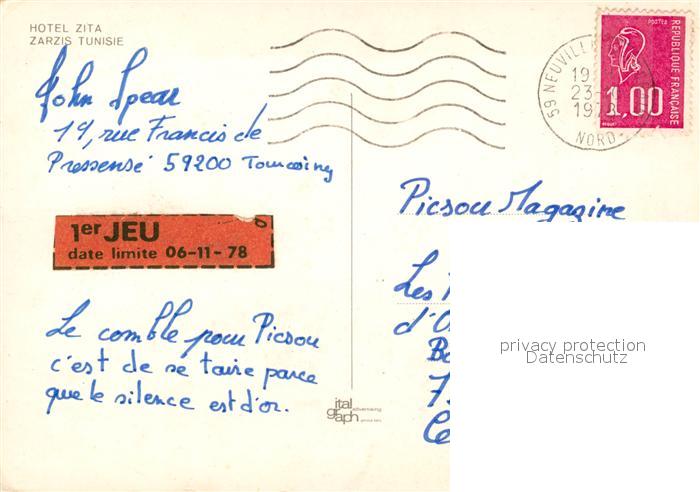 HOTEL ZITA
ZARZIS TUNISIE
John Spear
19, rue Francis de
Pressensé 59200 Tourcoing
1er JEU
date limite 06-11-78
Le comble pour Picsou
c'est de se taire parce
que le silence est d'or.
ital
graph
advertising
59 NEUVILLE
19
23-
19
NORD
POSTES
REPUBLIQUE FRANÇAISE
1,00
Picsou Magazine
Les
d'O
B
7
Ce
privacy protection
Datenschutz